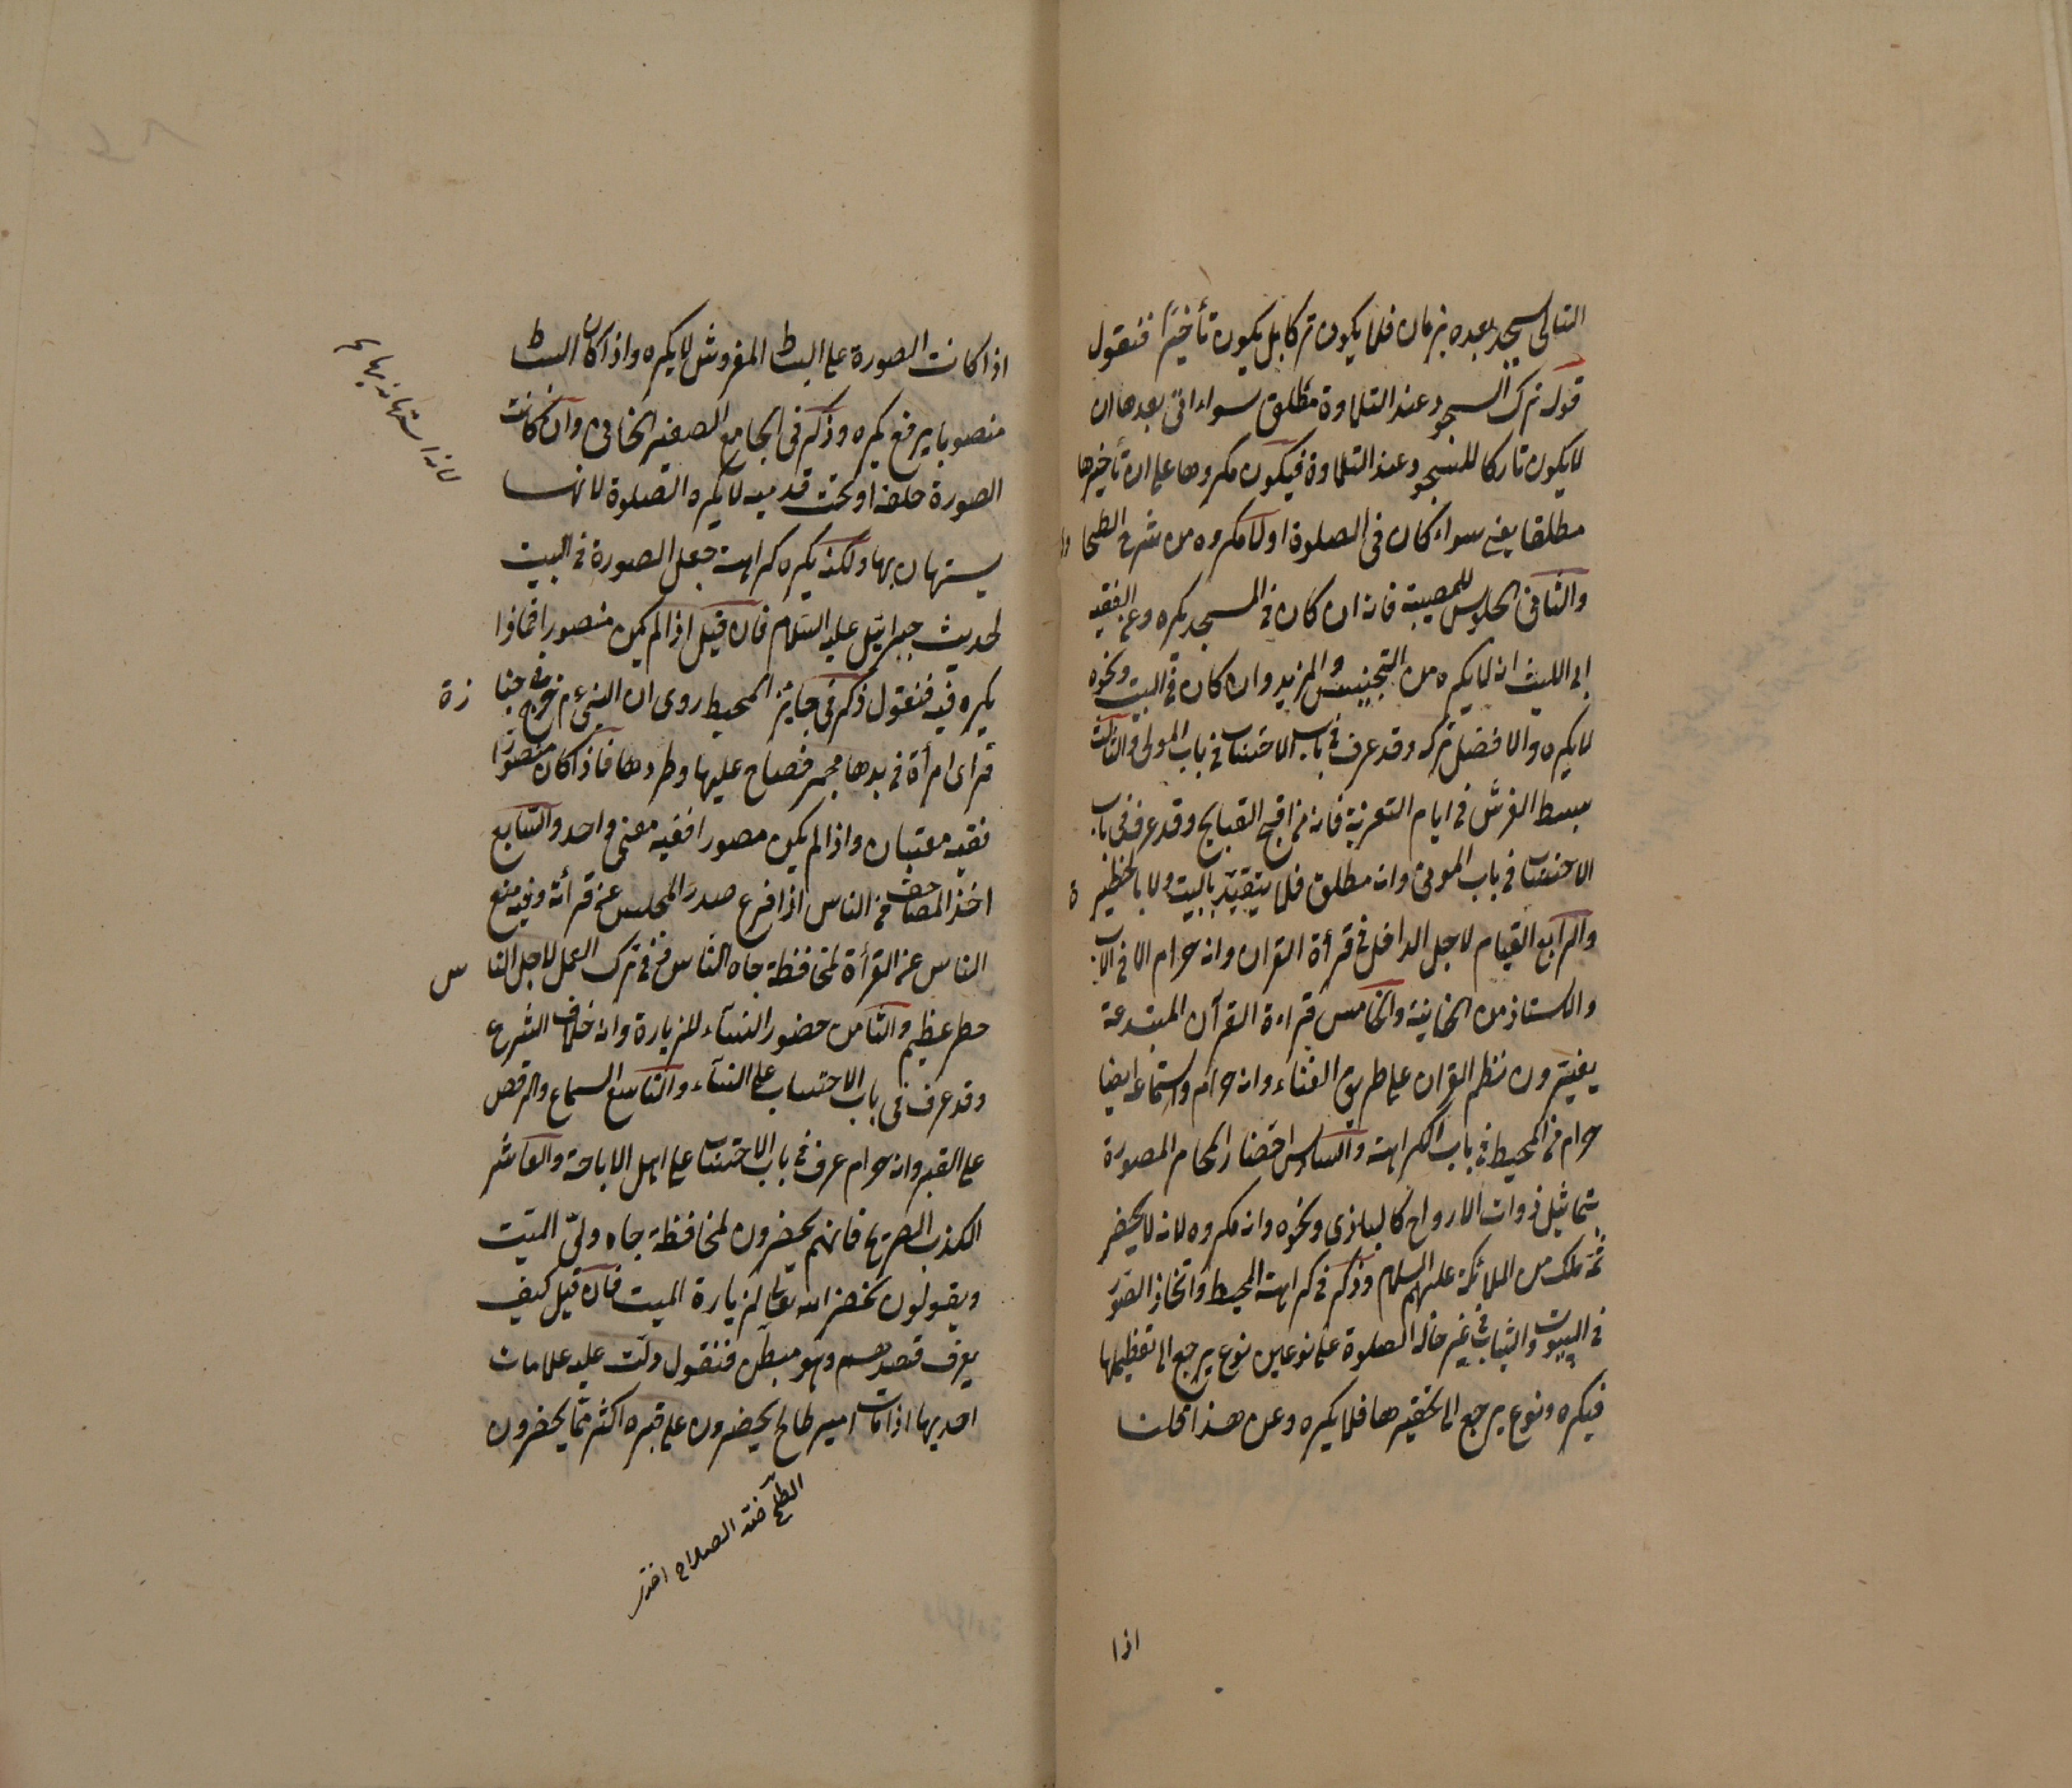 التالى يسجد بعده بزمان فلا يكون تركا بل يكون تأخيرًا فنقول
قوله ترك السجود عند التلاوة مطلق سواء اتى بعدها ان
لا يكون تاركا للسجود عند التلاوة فيكون مكروها على ان تأخيرها
مطلقا يعنى سواء كان فى الصلوة اولا مكروه من شرح الطحاوى
والثانى الجلوس للمصيبة فانه ان كان فى المسجد يكره وعن الفقيه
ابى الليث انه لا يكره من التجنيس والمزيد وان كان فى البيت ونحوه
لا يكره والافضل تركه وقد عرف فى باب الاحتساب فى باب الموتى والثالث
بسط الفرش فى ايام التعزية فانه من اقبح القبايح وقد عرف فى باب
الاحتساب فى باب الموتى وانه مطلق فلا يتقيد بالبيت ولا بالحظيرة
والرابع القيام لاجل الداخل فى قرأة القران وانه حرام الا فى الاب
والاستاذ من الخانية والخامس قراءة القرآن المبتدعة
يغيّرون نظم القران على طريق الغناء وانه حرام واستماعه ايضا
حرام فى المحيط فى باب الكراهة والسادس احضار المصورة
بتماثيل ذوات الارواح كالبازى ونحوه وانه مكروه لانه لا يحضر
ثمة ملك من الملائكة عليهم السلام وذكر فى كراهة المحيط واتخاذ الصور
فى البيوت والثياب فى غير حالة الصلوة على نوعين نوع يرجع الى تعظيمها
فيكره ونوع يرجع الى تحقيرها فلا يكره وعن هذا قلنا
اذا
اذا كانت الصورة على البساط المفروش لا يكره واذا كان البساط
منصوبا يرفع يكره وذكر فى الجامع الصغير الخانى وان كانت
الصورة خلفه او تحت قدميه لا يكره الصلوة لانها
يستهان بها ولكنه يكره كراهة جعل الصورة فى البيت
لحديث جبرائيل عليه السلام فان قيل اذا لم يكن منصورا فماذا
يكره فيه فنقول ذكر فى جنايز المحيط روى ان النبى عم خرج فى جنازة
فرأى امرأة فى يدها مجمر فصاح عليها وطردها فاذا كان منصورا
ففيه معتبان واذا لم يكن مصورا ففيه معنى واحد والسابع
اخذ المصاحف من الناس اذا فرع صدر المجلس عن قرأته وفيه منع
الناس عن القرأة لمحافظة جاه الناس فى ترك العمل لاجل الناس
خطر عظيم والثامن حضور النساء للزيارة وانه خلاف الشرع
وقد عرف فى باب الاحتساب على النساء والتاسع السماع والرقص
على القبر وانه حرام عرف فى باب الاحتساب على اهل الاباحة والعاشر
الكذب الصريح فانهم يحضرون لمحافظة جاه ولىّ الميّت
ويقولون نحضر الله تعالى لزيارة الميت فان قيل كيف
يعرف قصدهم وهو مبطن فنقول دلّت عليه علامات
احديها اذا مات امير طالح يحضرون على قبره اكثر مما يحضرون
الطلح ضد الصلاح اخترى
لانه استهانة بها